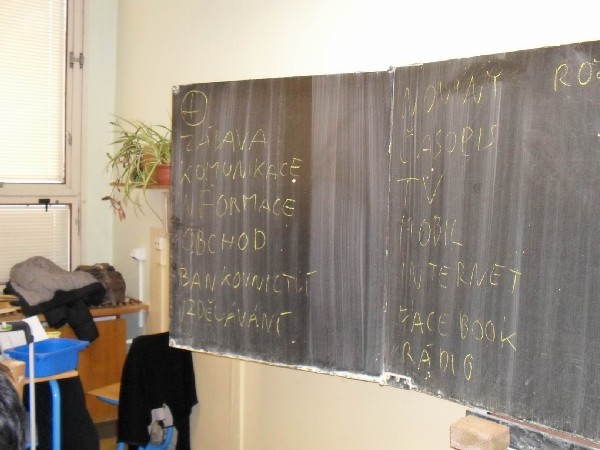 +
ZÁBAVA
KOMUNIKACE
INFORMACE
OBCHOD
BANKOVNICTVÍ
VZDĚLÁVÁNÍ
NOVINY
ČASOPIS
TV
MOBIL
INTERNET
FACEBOOK
RÁDIO